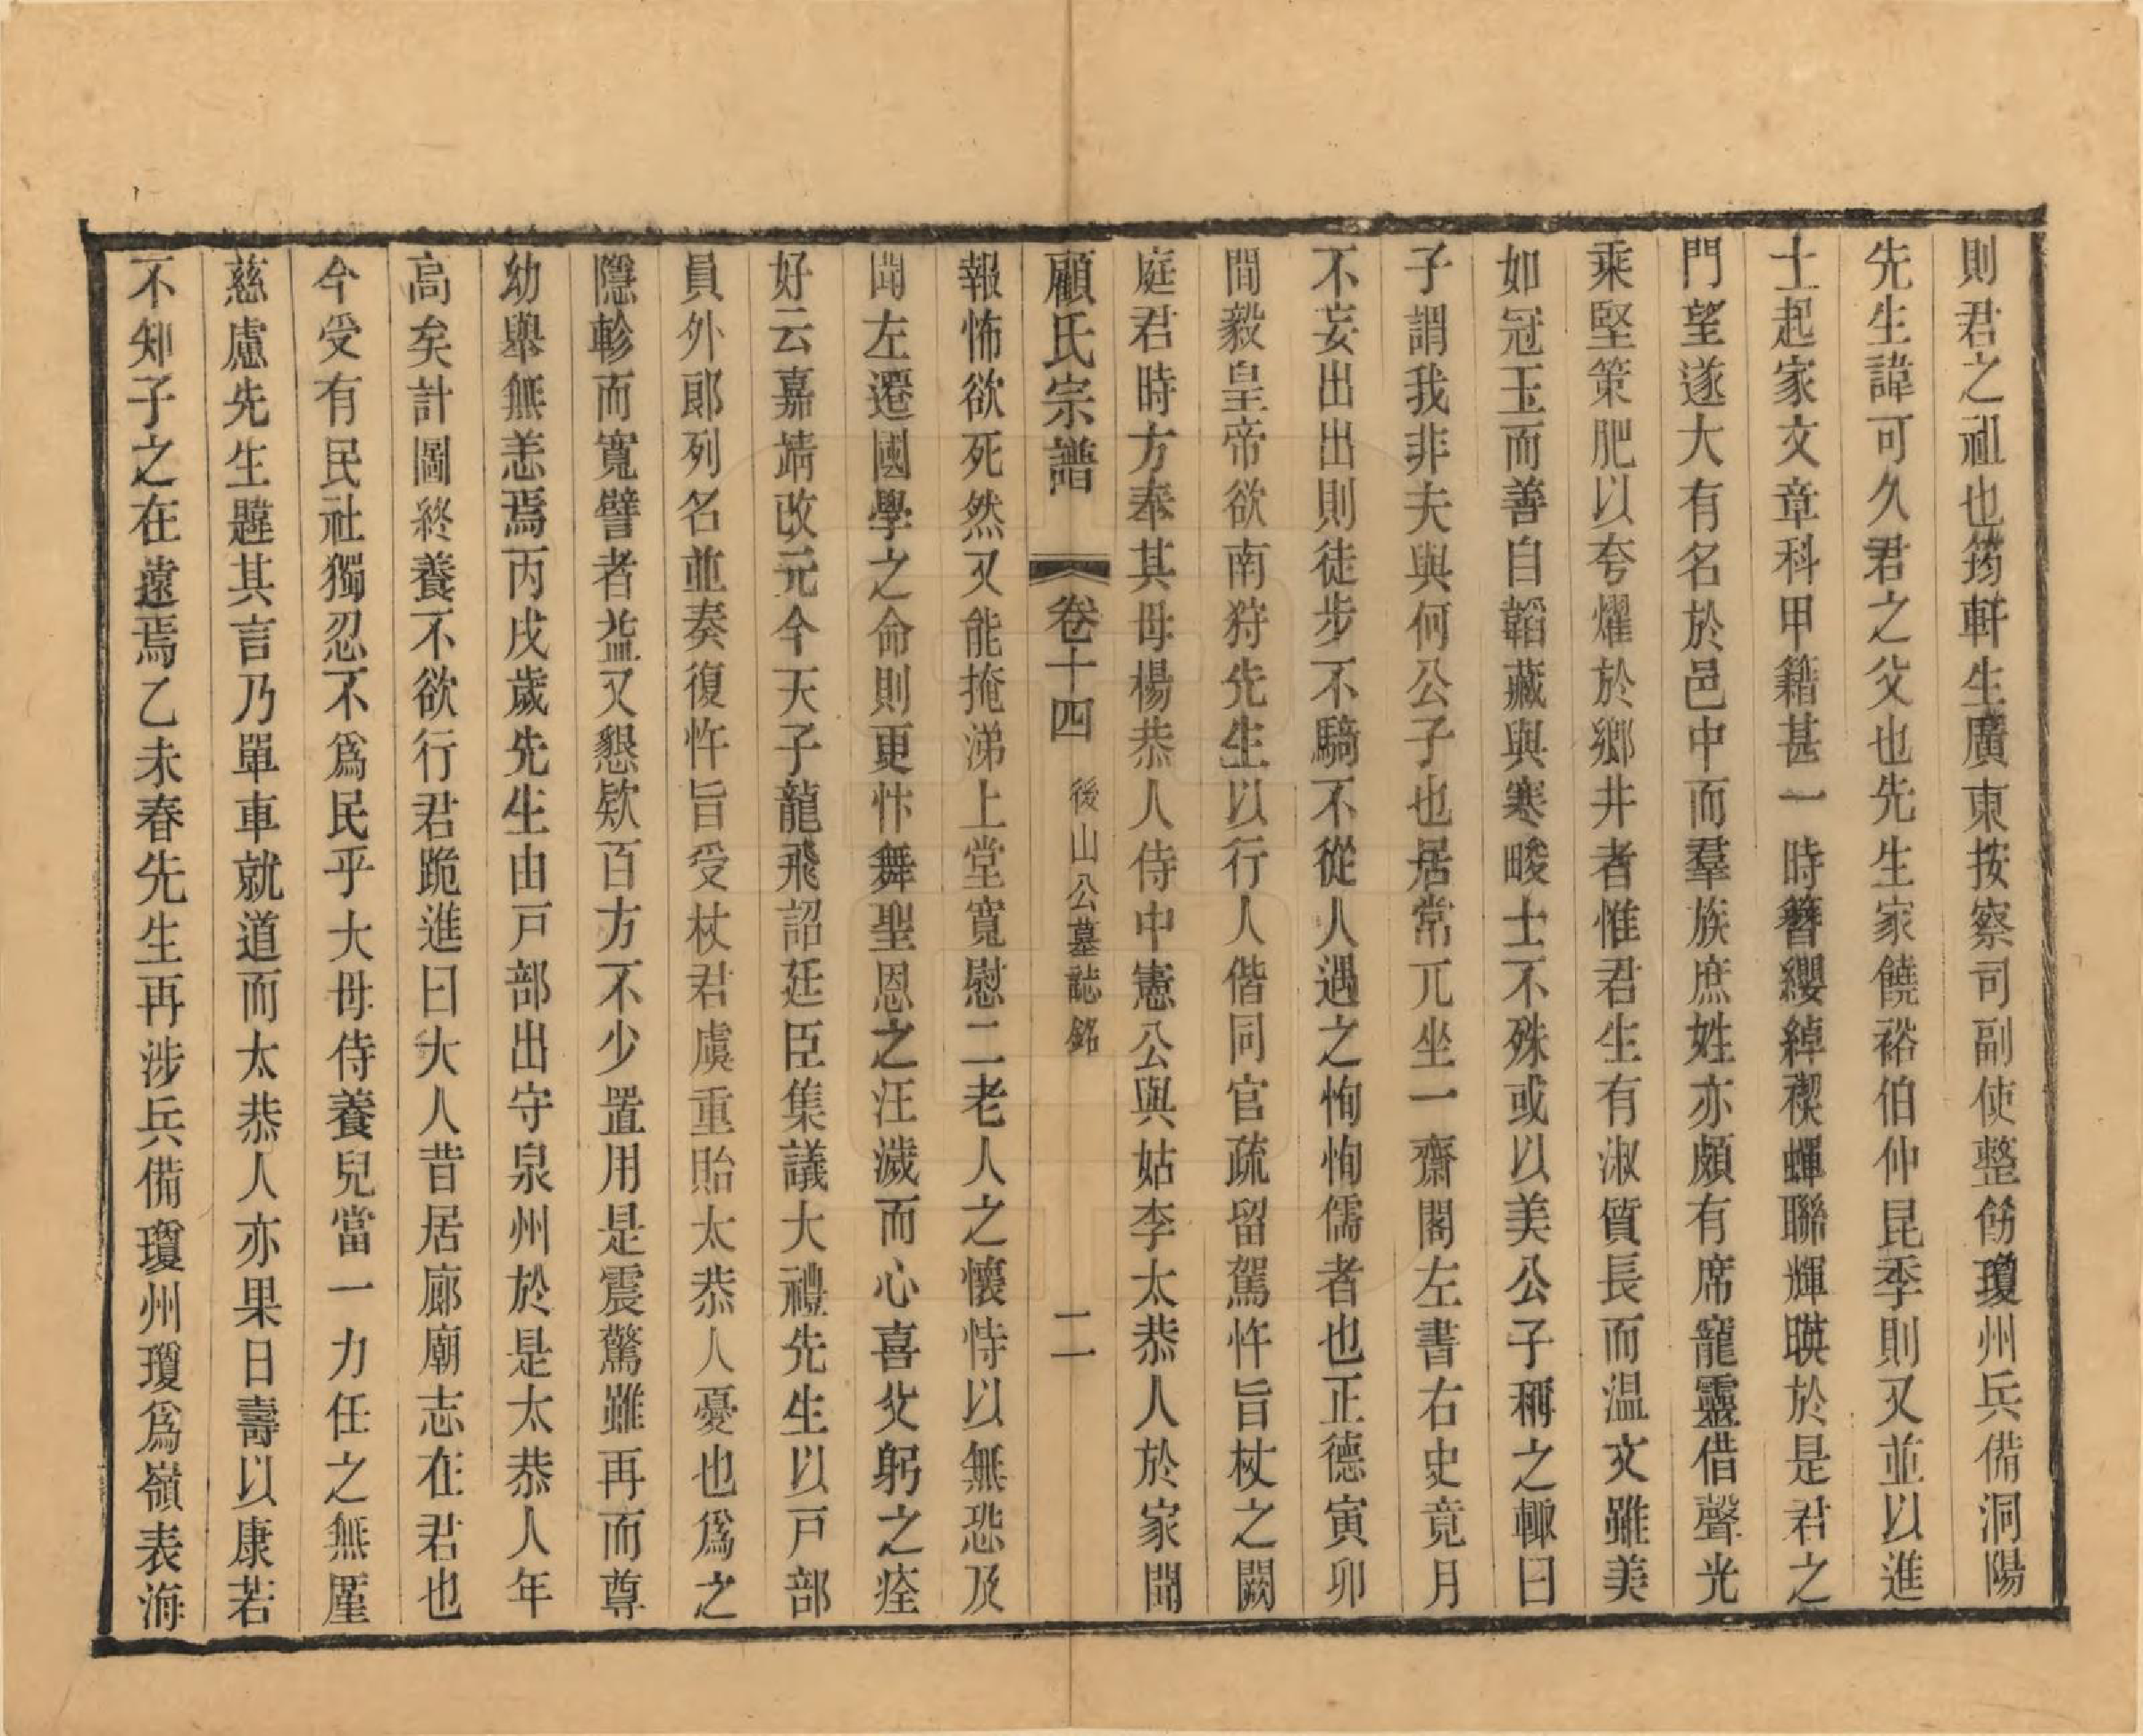 則君之祖也筠軒生廣東按察司副使整飭瓊州兵備洞陽
先生諱可久君之父也先生家饒裕伯仲昆季則又並以進
士起家文章科甲籍甚一時簪纓綽禊蟬聯輝暎於是君之
門望遂大有名於邑中而羣族庶姓亦頗有席寵靈借聲光
乘堅策肥以夸燿於鄉井者惟君生有淑質長而温文雖美
如冠玉而善自韜藏與寒畯士不殊或以美公子稱之輒曰
子謂我非夫與何公子也居常兀坐一齋閣左書右史竟月
不妄出出則徒步不騎不從人遇之恂恂儒者也正德寅卯
間毅皇帝欲南狩先生以行人偕同官疏留駕忤旨杖之闕
庭君時方奉其母楊恭人侍中憲公與姑李太恭人於家聞
顧氏宗譜 卷十四 後山公墓誌銘 二
報怖欲死然又能掩涕上堂寬慰二老人之懷恃以無恐及
聞左遷國學之命則更忭舞聖恩之汪濊而心喜父躬之痊
好云嘉靖改元今天子龍飛詔廷臣集議大禮先生以戸部
員外郎列名並奏復忤旨受杖君虞重貽太恭人憂也爲之
隱軫而寬譬者益又懇欵百方不少置用是震驚雖再而尊
幼舉無恙焉丙戌歲先生由戸部出守泉州於是太恭人年
高矣計圖終養不欲行君跪進曰大人昔居廊廟志在君也
今受有民社獨忍不爲民乎大母侍養兒當一力任之無厪
慈慮先生韙其言乃單車就道而太恭人亦果日壽以康若
不知子之在遠焉乙未春先生再涉兵備瓊州瓊爲嶺表海